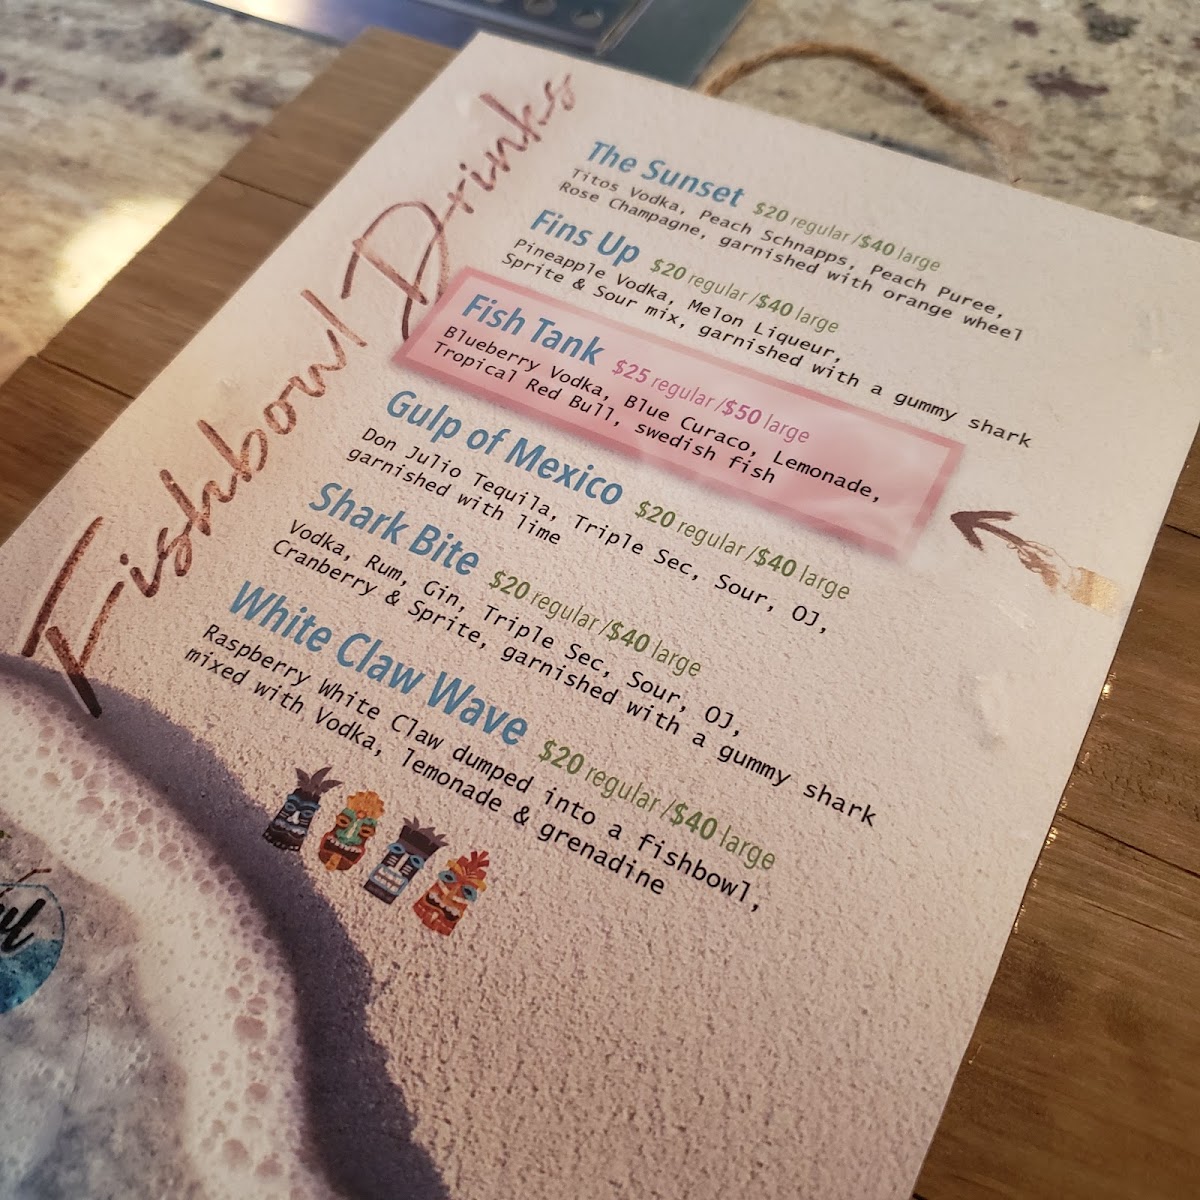 Fishbowl Drinks
The Sunset $20 regular /$40 large
Titos Vodka, Peach Schnapps, Peach Puree,
Rose Champagne, garnished with orange wheel
Fins Up $20 regular /$40 large
Pineapple Vodka, Melon Liqueur,
Sprite & Sour mix, garnished with a gummy shark
Fish Tank $25 regular /$50 large
Blueberry Vodka, Blue Curaco, Lemonade,
Tropical Red Bull, swedish fish
Gulp of Mexico $20 regular /$40 large
Don Julio Tequila, Triple Sec, Sour, OJ,
garnished with lime
Shark Bite $20 regular /$40 large
Vodka, Rum, Gin, Triple Sec, Sour, OJ,
Cranberry & Sprite, garnished with a gummy shark
White Claw Wave $20 regular /$40 large
Raspberry White Claw dumped into a fishbowl,
mixed with Vodka, lemonade & grenadine